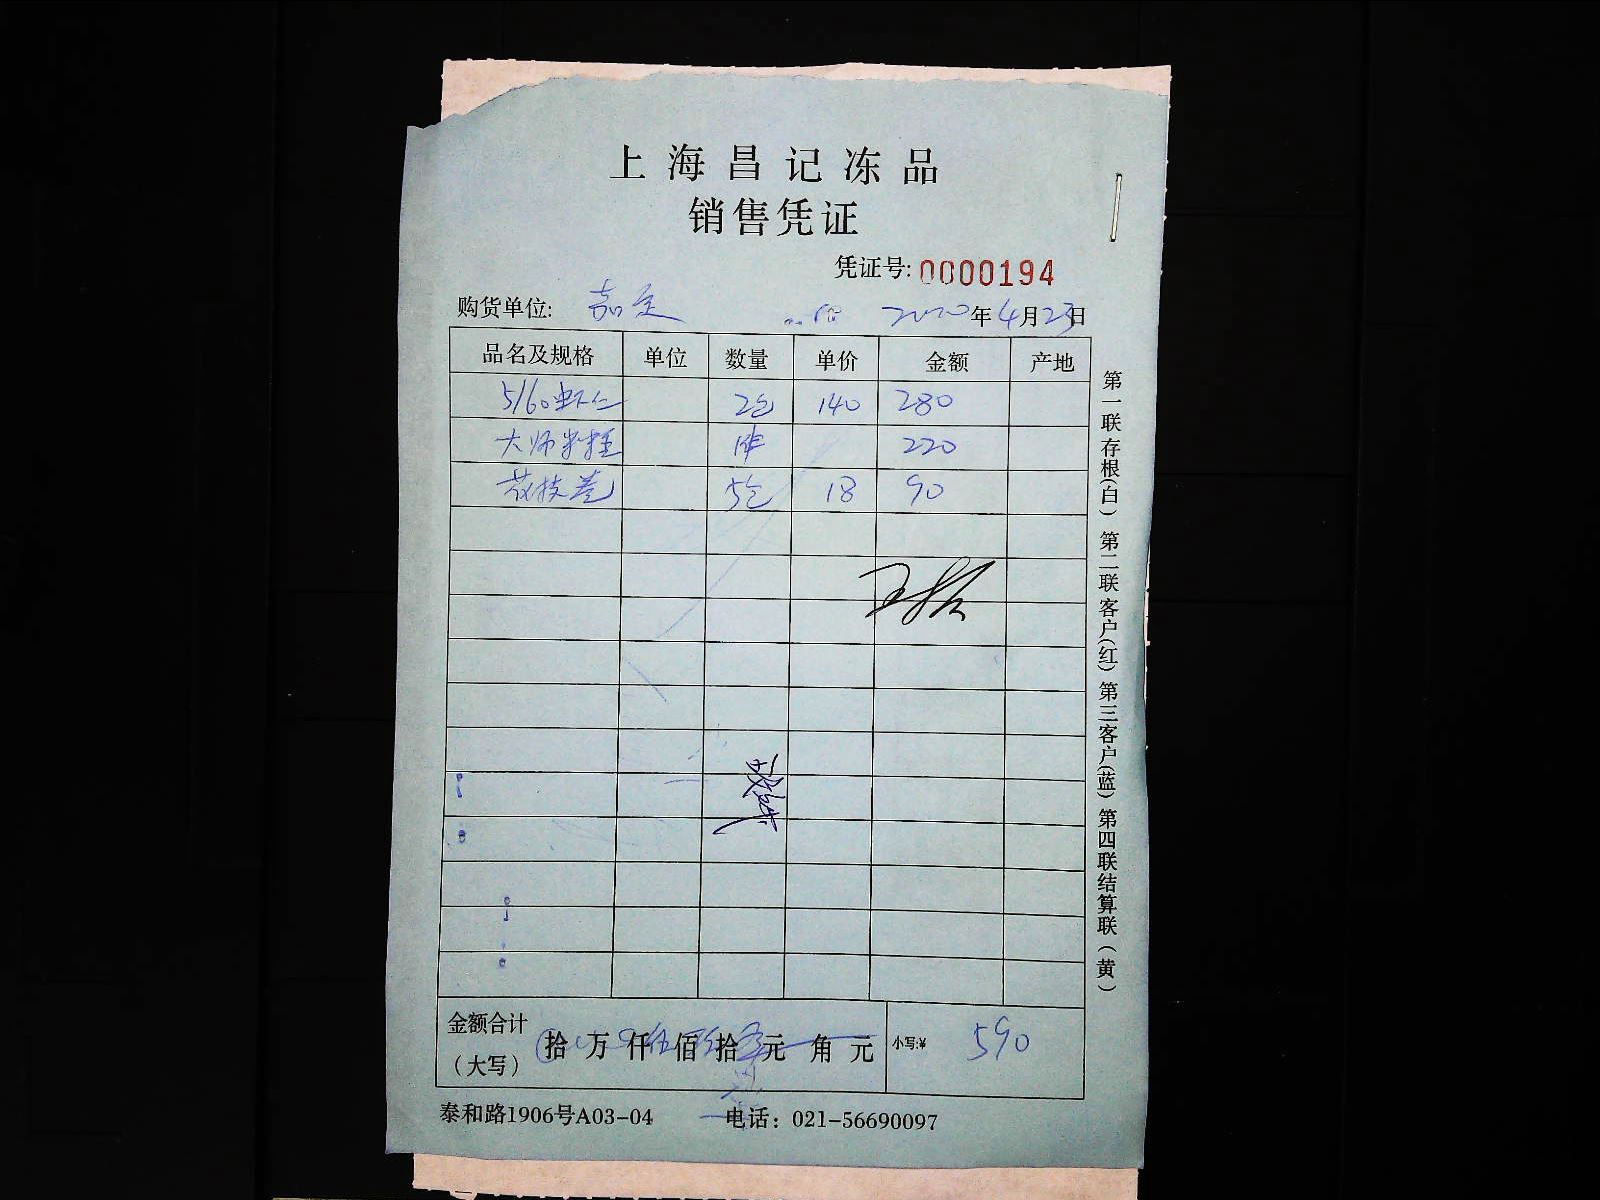 上海昌记冻品
销售凭证
凭证号: 0000194
购货单位: 嘉定 2020年4月23日
品名及规格 单位 数量 单价 金额 产地
5/60虾仁 2包 140 280
大师 1件 220
花枝卷 5包 18 90
第一联存根(白) 第二联客户(红) 第三客户(蓝) 第四联结算联(黄)
金额合计
(大写) 拾万仟伍佰玖拾元角元 小写:¥ 590
泰和路1906号A03-04 电话: 021-56690097